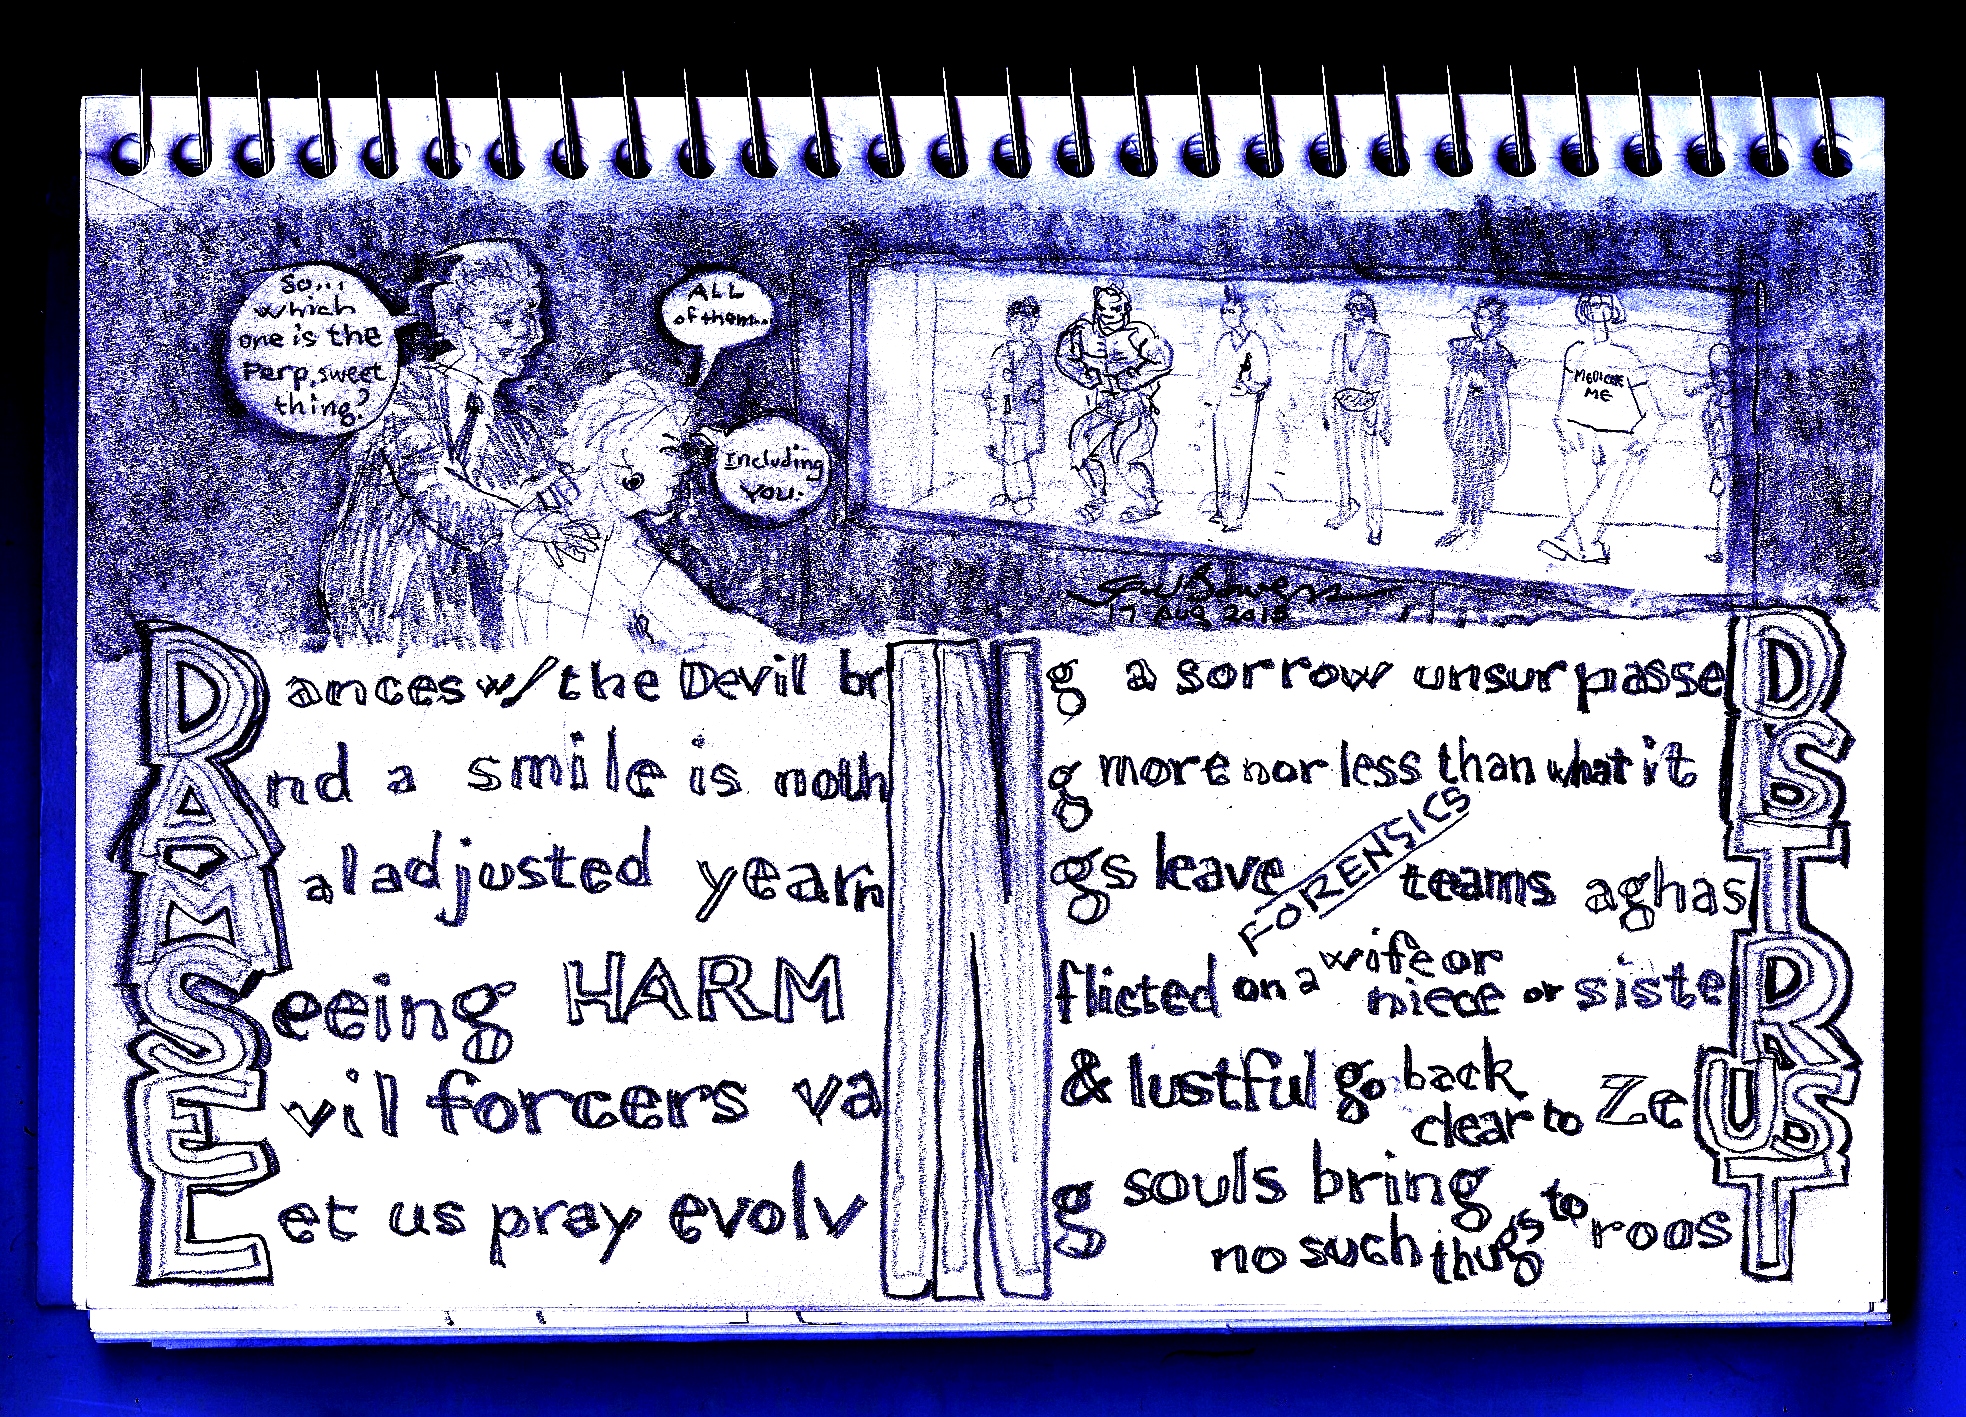 So...
which
one is the
Perp, sweet
thing?
ALL
of them...
Including
YOU.
MEDICATE
ME
17 Aug 2018
Dances w/ the Devil brINg a sorrow unsurpasseD
And a smile is nothINg more nor less than what it IS
Maladjusted yearnINgs leave FORENSICS teams aghasT
Seeing HARM INflicted on a wife or niece or sisteR
Evil forcers vaIN & lustful go back clear to ZeUS
Let us pray evolvINg souls bring no such thugs to roosT